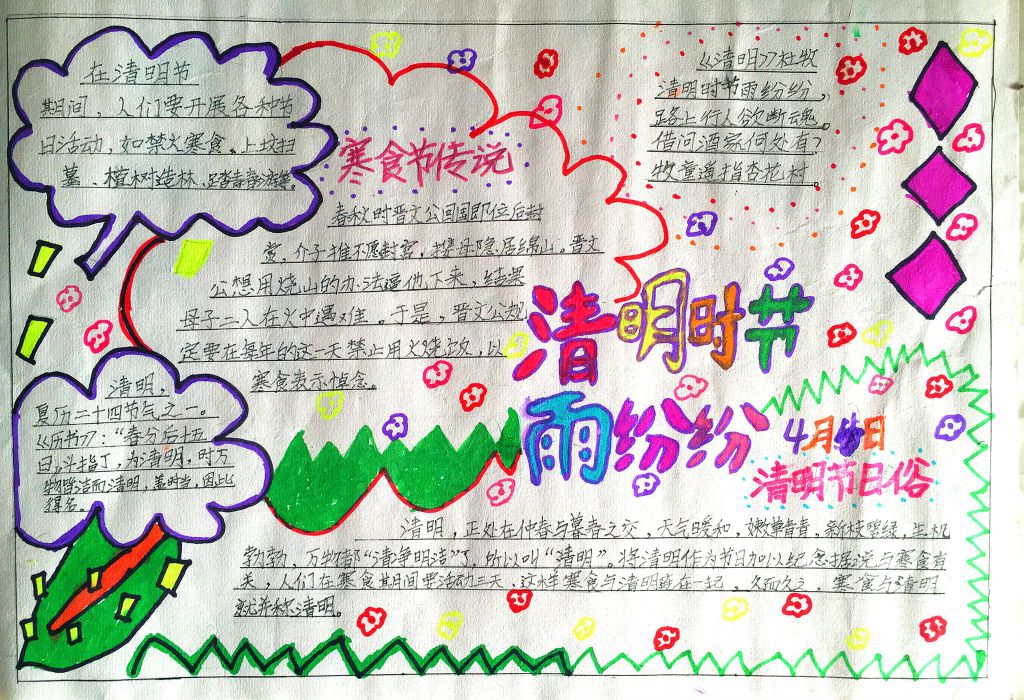 在清明节
期间，人们要开展各种节
日活动，如禁火寒食。上坟扫
墓、植树造林、踏青春游等。
寒食节传说
春秋时晋文公回国即位后封
赏，介子推不愿封赏，携母隐居绵山。晋文
公想用烧山的办法逼他下来，结果
母子二人在火中遇难。于是，晋文公规
定要在每年的这一天禁止用火烧改，以
寒食表示悼念。
《清明》杜牧
清明时节雨纷纷，
路上行人欲断魂。
借问酒家何处有？
牧童遥指杏花村。
清明时节
雨纷纷
清明，
夏历二十四节气之一。
《历书》：“春分后十五
日，斗指丁，为清明，时万
物皆洁而清明，盖时当，因此
得名。
4月日
清明节日俗
清明，正处在仲春与暮春之交，天气暖和，嫩草青青，新枝碧绿，生机
勃勃，万物都“清净明洁”了，所以叫“清明”。将清明作为节日加以纪念据说与寒食有
关，人们在寒食其间要活动三天，这样寒食与清明连在一起，久而久之，寒食与清明
就并称清明。